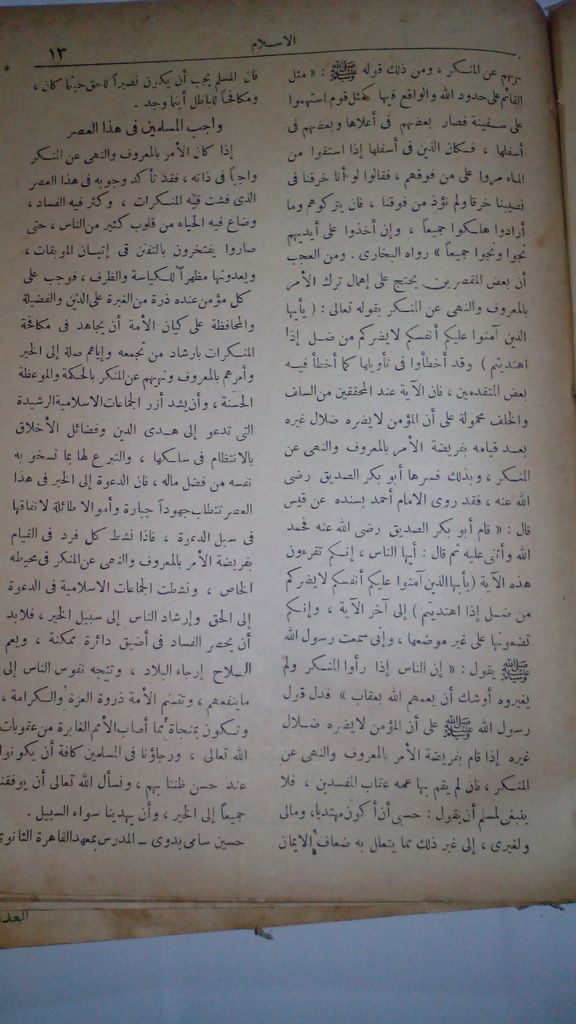 الاسلام
١٣
نهيهم عن المنكر ، ومن ذلك قوله ﷺ : « مثل
القائم على حدود الله والواقع فيها كمثل قوم استهموا
على سفينة فصار بعضهم فى أعلاها وبعضهم فى
أسفلها ، فكان الذين فى أسفلها إذا استقوا من
الماء مروا على من فوقهم ، فقالوا لو أنا خرقنا فى
نصيبنا خرقا ولم نؤذ من فوقنا ، فان يتركوهم وما
أرادوا هلكوا جميعاً ، وإن أخذوا على أيديهم
نجوا ونجوا جميعاً » رواه البخارى . ومن العجب
أن بعض المقصرين يحتج على إهمال ترك الأمر
بالمعروف والنهى عن المنكر بقوله تعالى : ( يأيها
الذين آمنوا عليكم أنفسكم لايضركم من ضل إذا
اهتديتم ) وقد أخطأوا فى تأويلها كما أخطأ فيه
بعض المتقدمين ، فان الآية عند المحققين من السلف
والخلف محمولة على أن المؤمن لايضره ضلال غيره
بعد قيامه بفريضة الأمر بالمعروف والنهى عن
المنكر ، وبذلك فسرها أبو بكر الصديق رضى
الله عنه ، فقد روى الامام أحمد بسنده عن قيس
قال : « قام أبو بكر الصديق رضى الله عنه فحمد
الله وأثنى عليه ثم قال : أيها الناس ، إنكم تقرءون
هذه الآية ( يأيها الذين آمنوا عليكم أنفسكم لايضركم
من ضل إذا اهتديتم ) إلى آخر الآية ، وإنكم
تضعونها على غير موضعها ، وإنى سمعت رسول الله
ﷺ يقول : « إن الناس إذا رأوا المنكر ولم
يغيروه أوشك أن يعمهم الله بعقاب » فدل قول
رسول الله ﷺ على أن المؤمن لايضره ضلال
غيره إذا قام بفريضة الأمر بالمعروف والنهى عن
المنكر ، فان لم يقم بها عمه عقاب المفسدين ، فلا
ينبغى لمسلم أن يقول : حسبى أن أكون مهتديا، ومالى
ولغيرى ، إلى غير ذلك مما يتعلل به ضعاف الايمان
فان المسلم يجب أن يكون نصيراً للحق حيثما كان ،
ومكافحاً للباطل أينما وجد .
واجب المسلمين فى هذا العصر
إذا كان الأمر بالمعروف والنهى عن المنكر
واجباً فى ذاته ، فقد تأكد وجوبه فى هذا العصر
الذى فشت فيه المنكرات ، وكثر فيه الفساد ،
وضاع فيه الحياء من قلوب كثير من الناس ، حتى
صاروا يفتخرون بالتفنن فى إتيان الموبقات ،
ويعدونها مظهراً للكياسة والظرف ، فوجب على
كل مؤمن عنده ذرة من الغيرة على الدين والفضيلة
والمحافظة على كيان الأمة أن يجاهد فى مكافحة
المنكرات بارشاد من تجمعه وإياهم صلة إلى الخير
وأمرهم بالمعروف ونهيهم عن المنكر بالحكمة والموعظة
الحسنة ، وأن يشد أزر الجماعات الاسلامية الرشيدة
التى تدعو إلى هدى الدين وفضائل الأخلاق
بالانتظام فى سلكها ، والتبرع لها بما تسخو به
نفسه من فضل ماله ، فان الدعوة إلى الخير فى هذا
العصر تتطلب جهوداً جبارة وأموالا طائلة لانفاقها
فى سبيل الدعوة ، فاذا نشط كل فرد فى القيام
بفريضة الأمر بالمعروف والنهى عن المنكر فى محيطه
الخاص ، ونشطت الجماعات الاسلامية فى الدعوة
إلى الحق وإرشاد الناس إلى سبيل الخير ، فلابد
أن يحصر الفساد فى أضيق دائرة ممكنة ، ويعم
الصلاح إرجاء البلاد ، وتتجه نفوس الناس إلى
ماينفعهم ، وتتسنم الأمة ذروة العزة والكرامة ،
وتكون بمنجاة مما أصاب الأمم الغابرة من عقوبات
الله تعالى ، ورجاؤنا فى المسلمين كافة أن يكونوا
عند حسن ظننا بهم ، ونسأل الله تعالى أن يوفقنا
جميعاً إلى الخير ، وأن يهدينا سواء السبيل .
حسين سامى بدوى ــ المدرس بمعهد القاهرة الثانوى